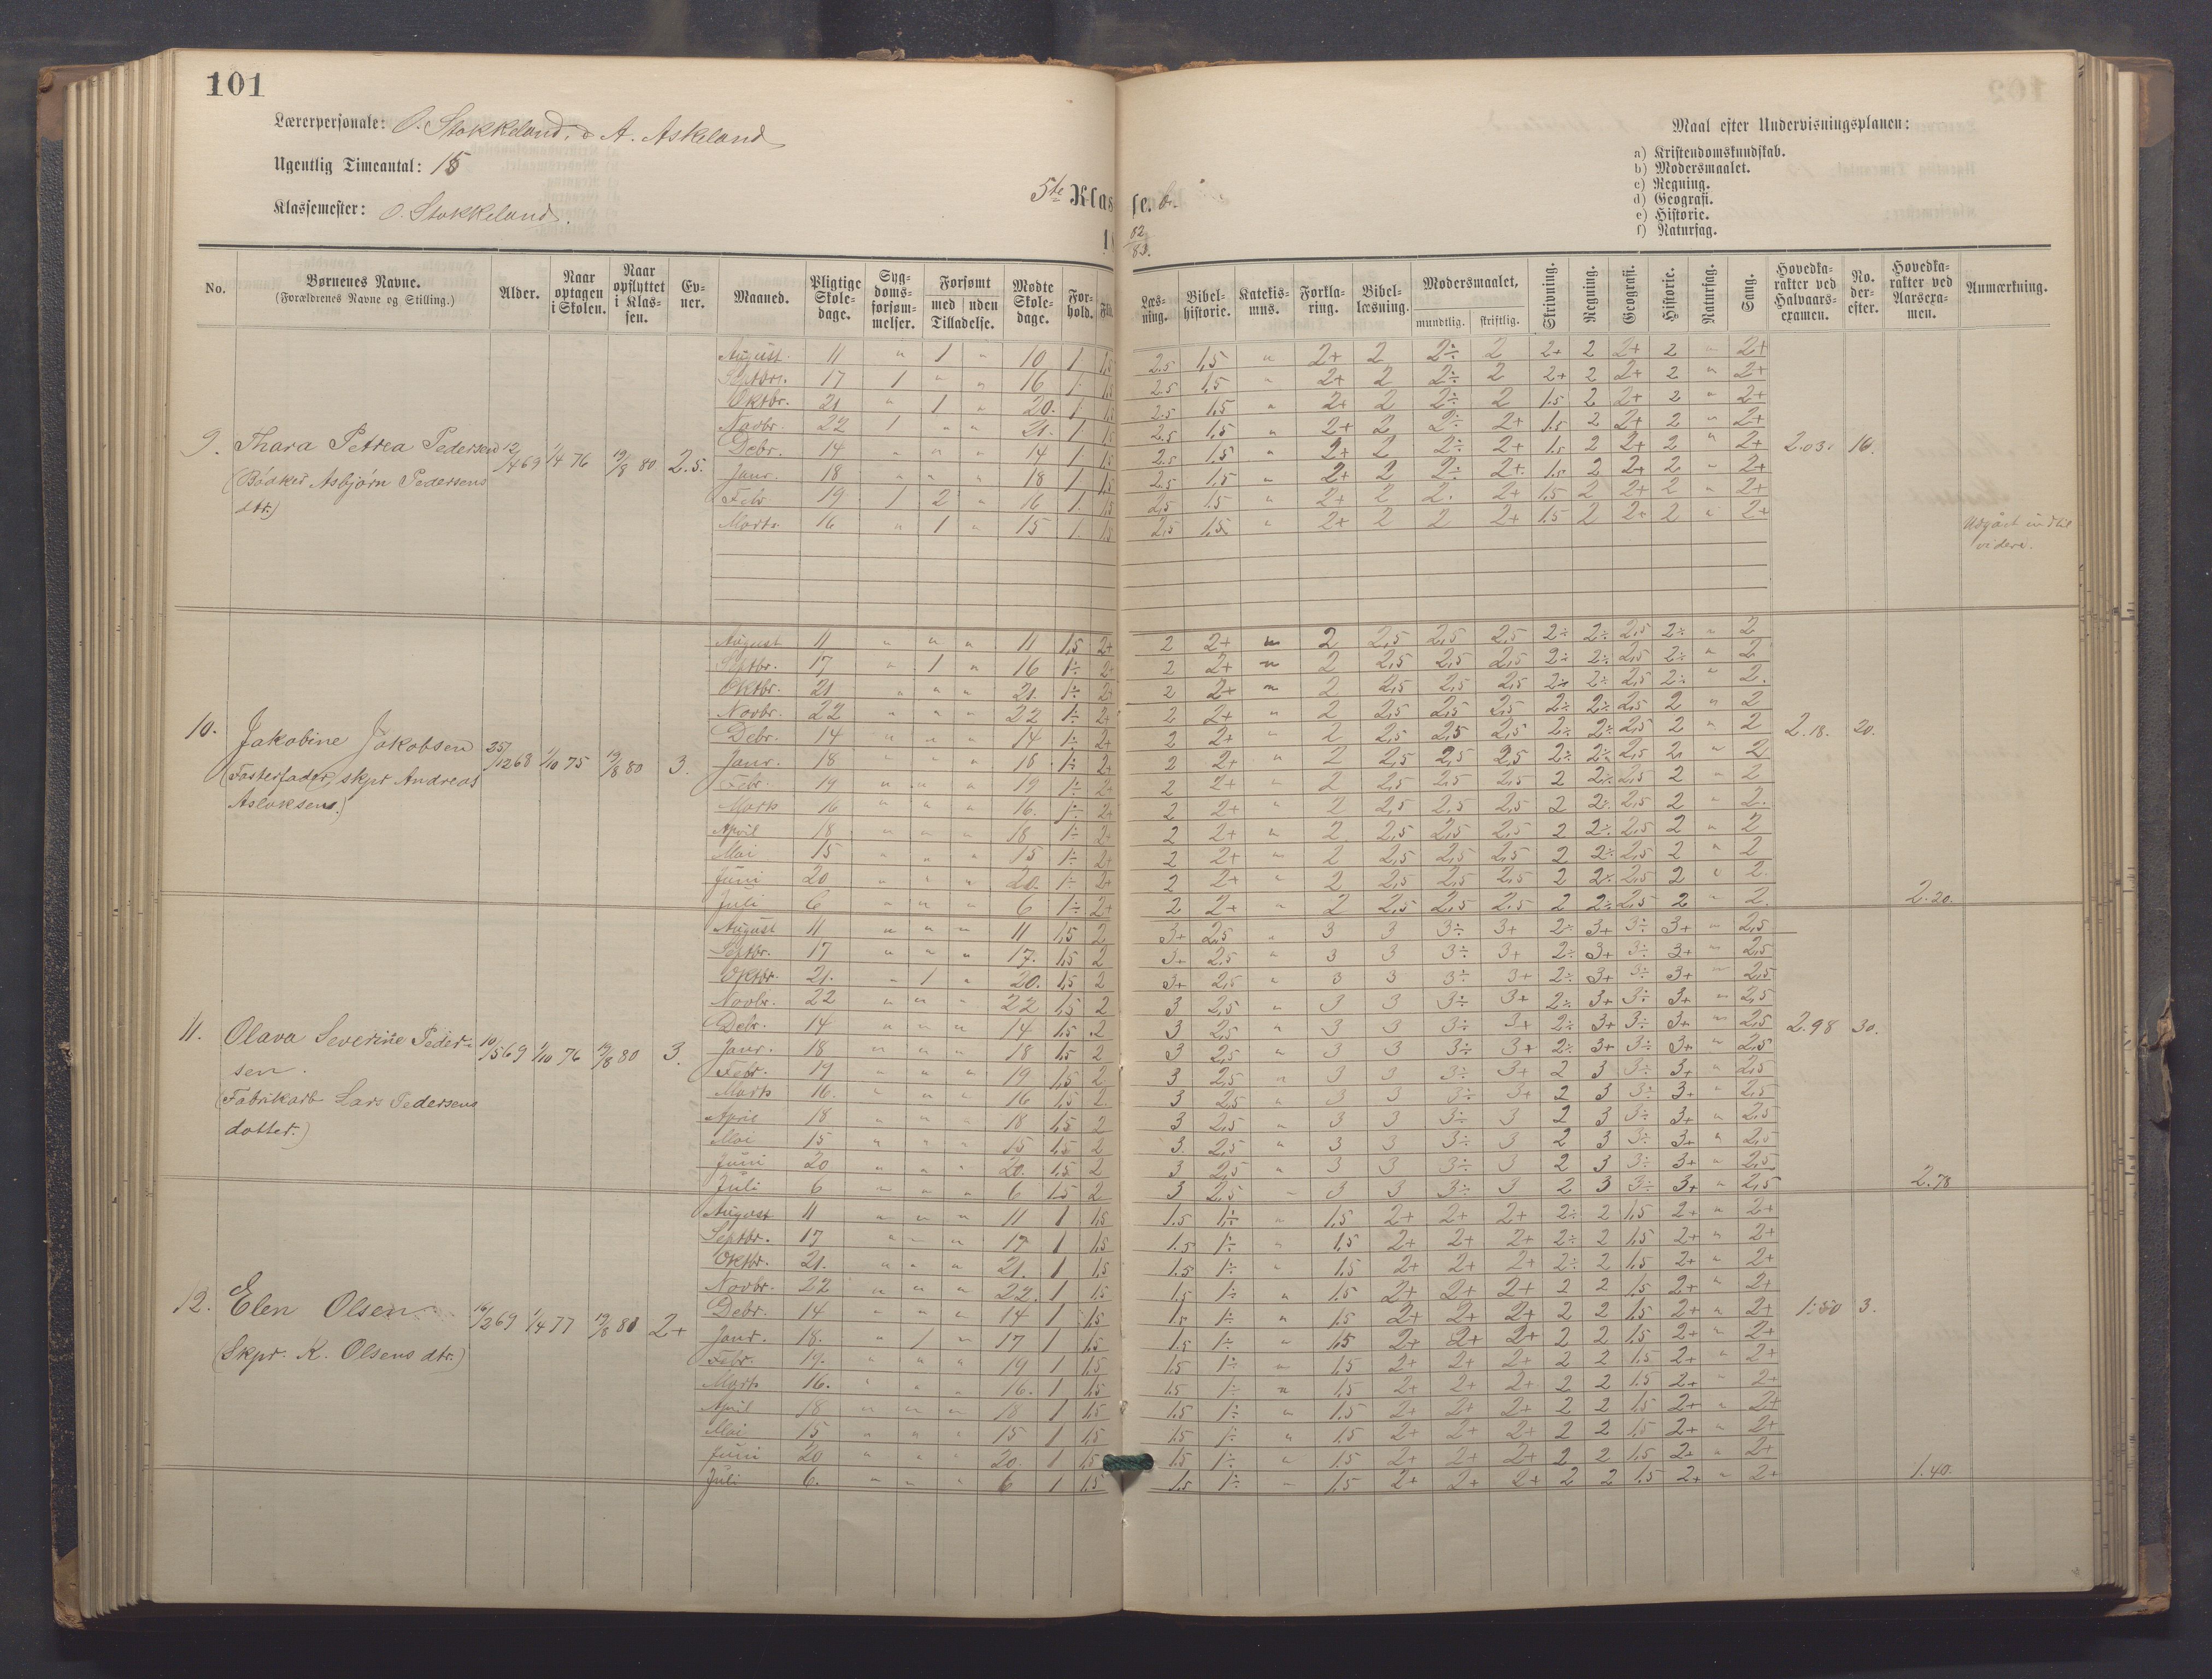 101
Lærerpersonale: O. Stokkeland. & A. Askeland
Ugentlig Timeantal: 15
Klassemester: O. Stokkeland.
5te Klasse. b.
82/83.
Maal efter Undervisningsplanen:
a) Kristendomskundskab.
b) Modersmaalet.
c) Regning.
d) Geografi.
e) Historie.
f) Naturfag.
No. | Børnenes Navne. (Forældrenes Navne og Stilling.) | Alder. | Naar optagen i Skolen. | Naar opflyttet i Klassen. | Evner. | Maaned. | Pligtige Skoledage. | Sygdomsforsømmelser. | Forsømt med Tilladelse. | uden | Mødte Skoledage. | Forhold. | Læsning. | Bibelhistorie. | Katekismus. | Forklaring. | Bibellæsning. | Modersmaalet, mundtlig. | skriftlig. | Skrivning. | Regning. | Geografi. | Historie. | Naturfag. | Sang. | Hovedkarakter ved Halvaarsexamen. | No. derefter. | Hovedkarakter ved Aarsexamen. | Anmærkning.
9. Thara Petrea Pedersen 12/4 69 1/4 76 19/8 80 2.5. 2.03. 16.
(Bødker Asbjørn Pedersens
dtr.)
August 11 " 1 " 10 1 1,5 2.5 1,5 " 2+ 2 2÷ 2 2+ 2 2+ 2 " 2+
Septbr. 17 1 " " 16 1 1,5 2.5 1,5 " 2+ 2 2÷ 2 2+ 2 2+ 2 " 2+
Oktbr. 21 " 1 " 20. 1 1,5 2.5 1,5 " 2+ 2 2÷ 2 1.5 2 2+ 2 " 2+
Novbr. 22 1 " " 21. 1 1,5 2.5 1,5 " 2+ 2 2÷ 2+ 1.5 2 2+ 2 " 2+
Debr. 14 " " " 14 1 1,5 2.5 1,5 " 2+ 2 2÷ 2+ 1.5 2 2+ 2 " 2+
Janr. 18 " " " 18 1 1,5 2.5 1,5 " 2+ 2 2÷ 2+ 1.5 2 2+ 2 " 2+
Febr. 19 1 2 " 16 1 1,5 2,5 1.5 " 2+ 2 2. 2+ 1.5 2 2+ 2 " 2+
Marts 16 " 1 " 15 1 1,5 2,5 1,5 " 2+ 2 2 2+ 1.5 2 2+ 2 " 2+
Udgået indtil
videre.
10. Jakobine Jakobsen 25/12 68 1/10 75 19/8 80 3. 2.18. 20.
(Fosterfader, skpr Andreas
Aslaksens.)
August 11 " " " 11 1,5 2+ 2 2+ " 2 2,5 2,5 2,5 2÷ 2÷ 2,5 2÷ " 2
Septbr. 17 " 1 " 16 1÷ 2+ 2 2+ " 2 2,5 2,5 2,5 2÷ 2÷ 2,5 2÷ " 2
Oktbr. 21 " " " 21. 1÷ 2+ 2 2+ " 2 2,5 2,5 2,5 2÷ 2÷ 2,5 2÷ " 2.
Novbr. 22 " " " 22 1÷ 2+ 2 2+ " 2 2,5 2,5 2,5 2÷ 2÷ 2,5 2 " 2
Debr. 14 " " " 14 1÷ 2+ 2 2+ " 2 2,5 2,5 2,5 2÷ 2÷ 2,5 2 " 2
Janr. 18 " " " 18 1÷ 2+ 2 2+ " 2 2,5 2,5 2,5 2÷ 2÷ 2,5 2 " 2
Febr. 19 " " " 19 1÷ 2+ 2 2+ " 2 2,5 2,5 2,5 2 2÷ 2,5 2 " 2
Marts 16 " " " 16. 1÷ 2+ 2 2+ " 2 2,5 2.5 2,5 2 2÷ 2,5 2 " 2.
April 18 " " " 18 1÷ 2+ 2 2+ " 2 2,5 2,5 2,5 2 2÷ 2,5 2 " 2
Mai 15 " " " 15 1÷ 2+ 2 2+ " 2 2,5 2,5 2,5 2 2÷ 2,5 2 " 2
Juni 20 " " " 20. 1÷ 2+ 2 2+ " 2 2,5 2,5 2,5 2 2÷ 2,5 2 " 2.
Juli 6 " " " 6 1÷ 2+ 2 2+ " 2 2,5 2,5 2.5 2 2÷ 2,5 2 " 2. 2.20.
11. Olava Severine Peder- 10/5 69 1/10 76 19/8 80 3. 2.98 30.
sen.
(Fabrikarb Lars Pedersens
datter.)
August 11 " " " 11 1,5 2 3+ 2,5 " 3 3 3÷ 3+ 2÷ 3+ 3÷ 3+ " 2,5
Septbr. 17 " " " 17. 1,5 2 3+ 2,5 " 3 3 3÷ 3+ 2÷ 3+ 3÷ 3+ " 2,5
Oktbr. 21. " 1 " 20. 1,5 2 3+ 2,5 " 3 3 3÷ 3+ 2÷ 3+ 3÷ 3+ " 2,5
Novbr. 22 " " " 22 1,5 2 3 2,5 " 3 3 3÷ 3+ 2÷ 3+ 3÷ 3+ " 2,5
Debr. 14 " " " 14 1,5 2 3 2,5 " 3 3 3÷ 3+ 2÷ 3+ 3÷ 3+ " 2,5
Janr. 18 " " " 18 1,5 2 3 2,5 " 3 3 3÷ 3+ 2÷ 3+ 3÷ 3+ " 2,5
Febr. 19 " " " 19 1,5 2 3 2,5 " 3 3 3÷ 3+ 2 3 3÷ 3+ " 2,5
Marts 16. " " " 16 1,5 2 3 2,5 " 3 3 3÷ 3+ 2 3 3÷ 3+ " 2,5
April 18 " " " 18 1,5 2 3 2,5 " 3 3 3÷ 3 2 3 3÷ 3+ " 2,5
Mai 15 " " " 15 1,5 2 3. 2,5 " 3 3 3÷ 3 2 3 3÷ 3+ " 2,5
Juni 20 " " " 20. 1,5 2 3 2,5 " 3 3 3÷ 3 2 3 3÷ 3+ " 2,5
Juli 6 " " " 6 1,5 2 3 2,5 " 3 3 3÷ 3 2 3 3÷ 3+ " 2,5 2.78
12. Elen Olsen. 16/2 69 1/4 77 19/8 80 2+ 3.
(Skpr. K. Olsens dtr.)
August 11 " " " 11 1 1,5 1.5 1÷ " 1,5 2+ 2+ 2+ 2÷ 2 1,5 2+ " 2+
Septbr. 17 " " " 17 1 1,5 1.5 1÷ " 1,5 2+ 2+ 2+ 2÷ 2 1,5 2+ " 2+
Oktbr. 21. " " " 21. 1 1,5 1.5 1÷ " 1,5 2+ 2+ 2+ 2÷ 2 1,5 2+ " 2+
Novbr. 22 " " " 22. 1 1,5 1,5 1÷ " 1,5 2+ 2+ 2+ 2 2 1,5 2+ " 2+
Debr. 14 " " " 14 1 1,5 1,5 1÷ " 1,5 2+ 2+ 2+ 2 2 1,5 2+ " 2+
Janr. 18. " 1 " 17 1 1,5 1.5 1÷ " 1,5 2+ 2+ 2+ 2 2 1,5 2+ " 2+
Febr. 19. " " " 19 1 1,5 1,5 1÷ " 1,5 2+ 2+ 2+ 2 2 1,5 2+ " 2+
Marts 16. " " " 16. 1 1,5 1,5 1÷ " 1,5 2+ 2+ 2+ 2 2 1,5 2+ " 2+
April 18 " " " 18 1 1,5 1,5 1÷ " 1,5 2+ 2+ 2+ 2 2 1,5 2+ " 2+
Mai 15 " " " 15 1 1,5 1,5 1÷ " 1,5 2+ 2+ 2+ 2 2 1,5 2+ " 2+
Juni 20 " " " 20. 1 1,5 1,5 1÷ " 1,5 2+ 2+ 2+ 2 2 1,5 2+ " 2+
Juli 6. " " " 6 1 1,5 1,5 1÷ " 1,5 2+ 2+ 2+ 2 2 1,5 2+ " 2+ 1.40.